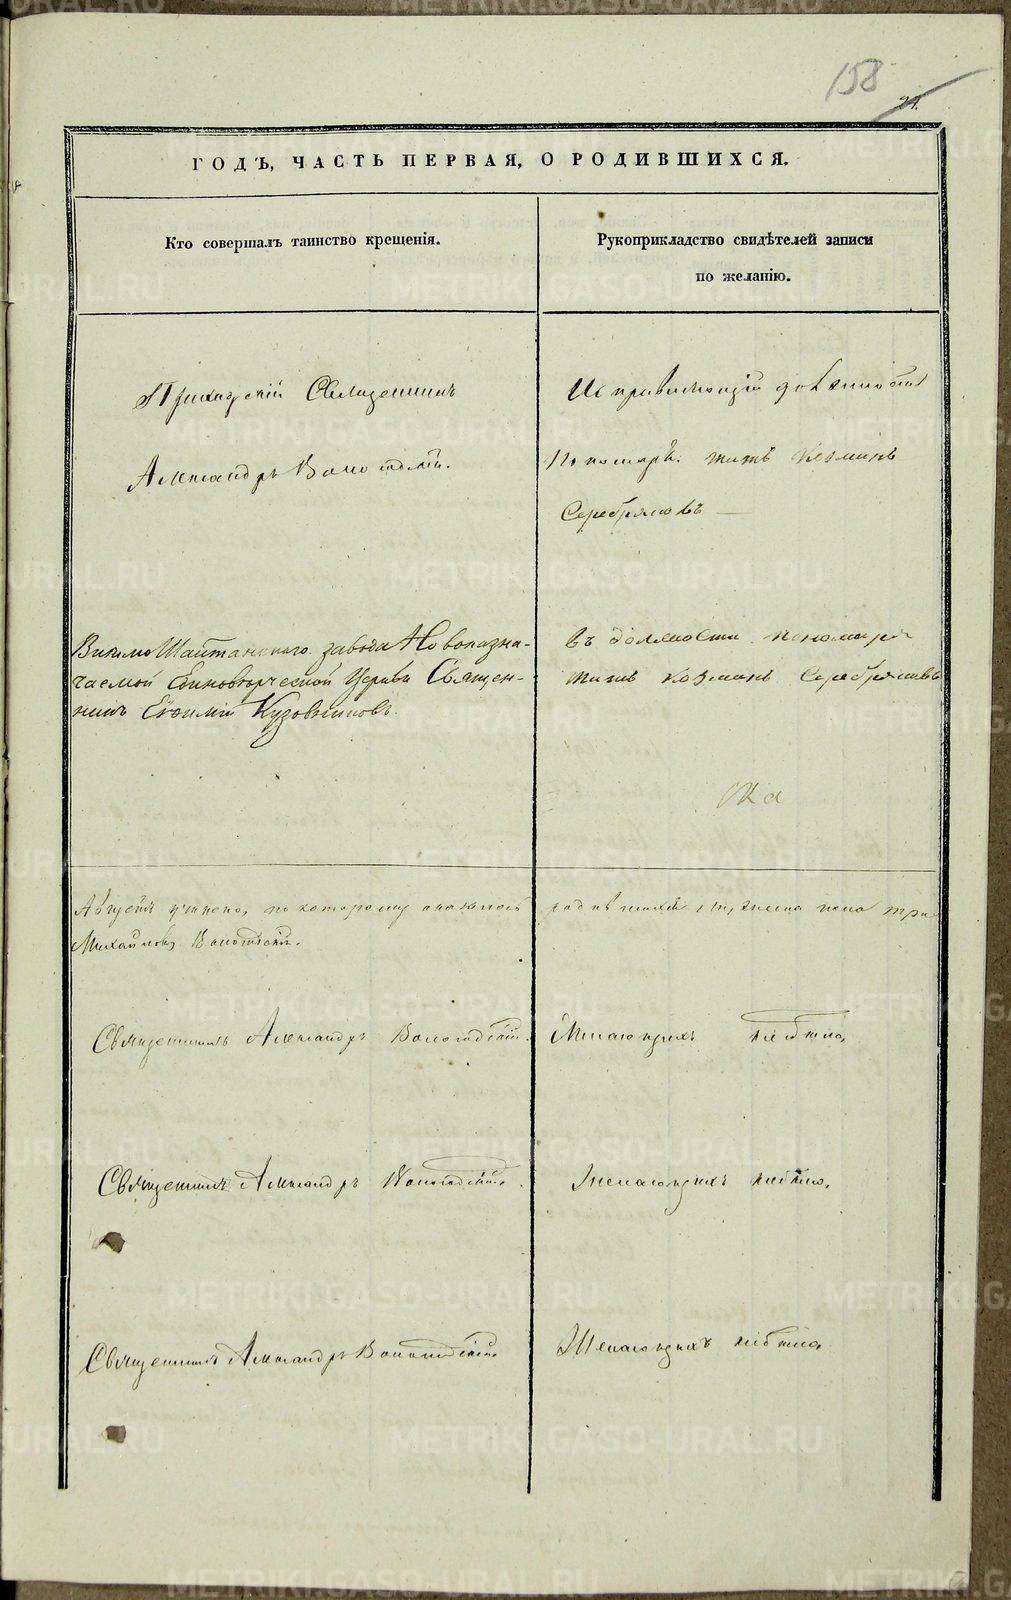 158
21.
ГОДЪ, ЧАСТЬ ПЕРВАЯ, О РОДИВШИХСЯ.
Кто совершалъ таинство крещенія.
Рукоприкладство свидѣтелей записи
по желанію.
Приходскій Священникъ
Александръ Вологодскій.
Исправляющій должность
Пономаря Титъ Козминъ
Серебряковъ
Билимо Шайтанскаго завода Новоназна-
чаемой Единовѣрческой Церкви Священ-
никъ Евфимій Кузовниковъ.
Въ должности пономаря
Титъ Козминъ Серебряковъ
На
Августъ учинена, по которому оказалось родившихся мужеска пола три
Михайловъ Вологодскій.
Священникъ Александръ Вологодскій.
Желающихъ небыло.
Священникъ Александръ Вологодскій.
Желающихъ небыло.
Священникъ Александръ Вологодскій.
Желающихъ небыло.
METRIKI.GASO-URAL.RU